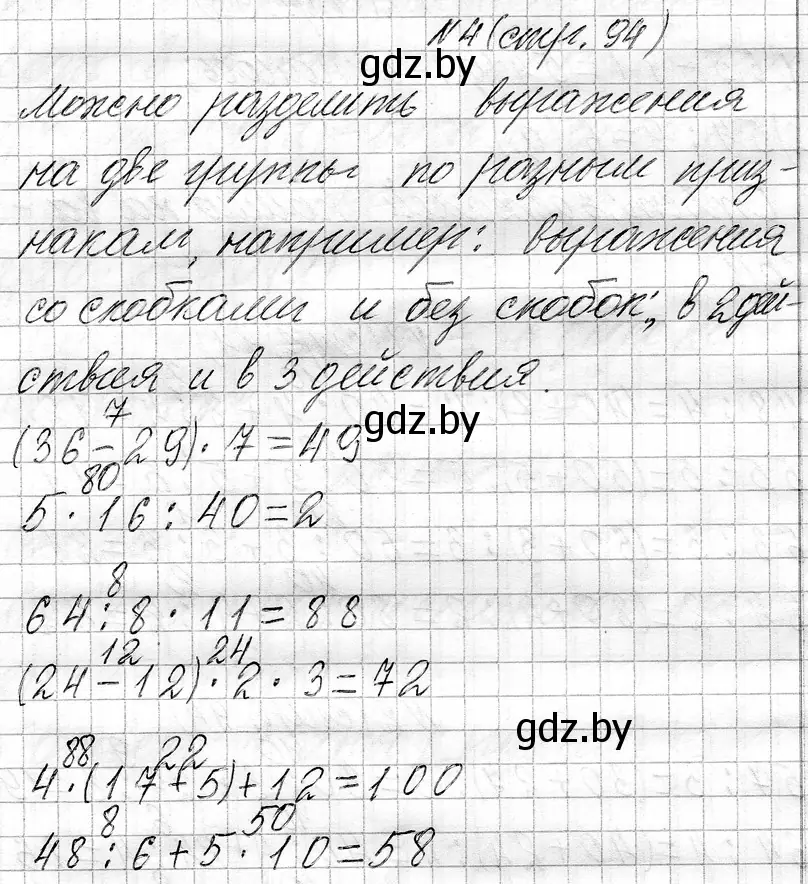 N 4 (стр. 94)
gdz.by
Можно разделить выражения
на две группы по разным приз-
накам, например: выражения
со скобками и без скобок; в 2 дей-
ствия и в 3 действия.
7
gdz.by
(36 - 29) · 7 = 49
80
5 · 16 : 40 = 2
8
64 : 8 · 11 = 88
12 24
(24 - 12) · 2 · 3 = 72
gdz.by
88 22
4 · (17 + 5) + 12 = 100
8 50
48 : 6 + 5 · 10 = 58